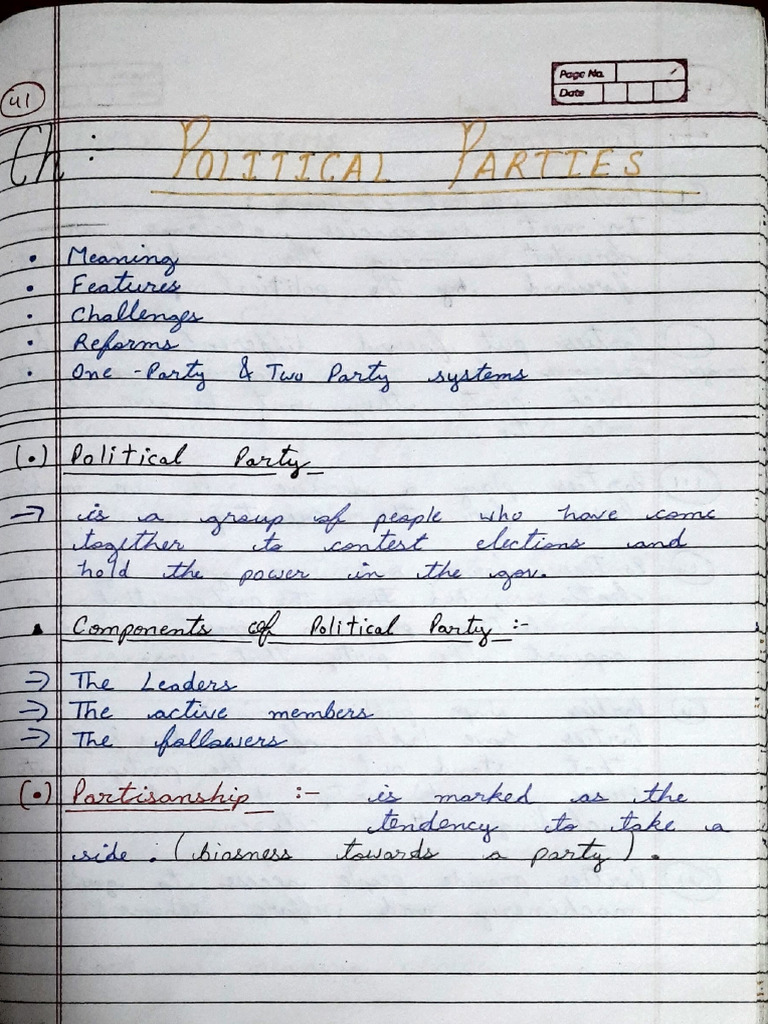 Page No.
Date
41
Ch: POLITICAL PARTIES
• Meaning
• Features
• Challenges
• Reforms
• One-Party & Two Party systems
(•) Political Party
→ is a group of people who have come
together to contest elections and
hold the power in the gov.
• Components of Political Party :-
⇒ The Leaders
⇒ The active members
⇒ The followers
(•) Partisanship :- is marked as the
tendency to take a
side. (biasness towards a party).